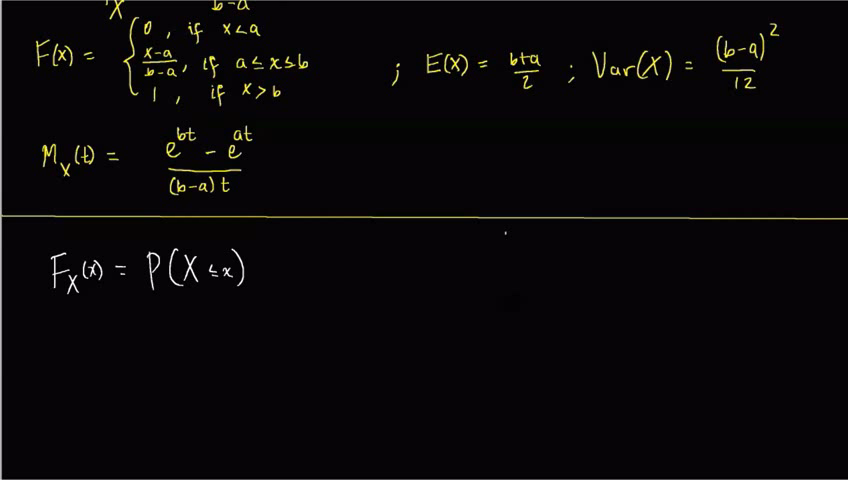 X b-a
F(x) = { 0, if x<a
x-a/b-a, if a≤x≤b
1, if x>b
; E(X) = b+a/2 ; Var(X) = (b-a)²/12
M_X(t) = e^bt - e^at/(b-a)t
F_X(x) = P(X≤x)